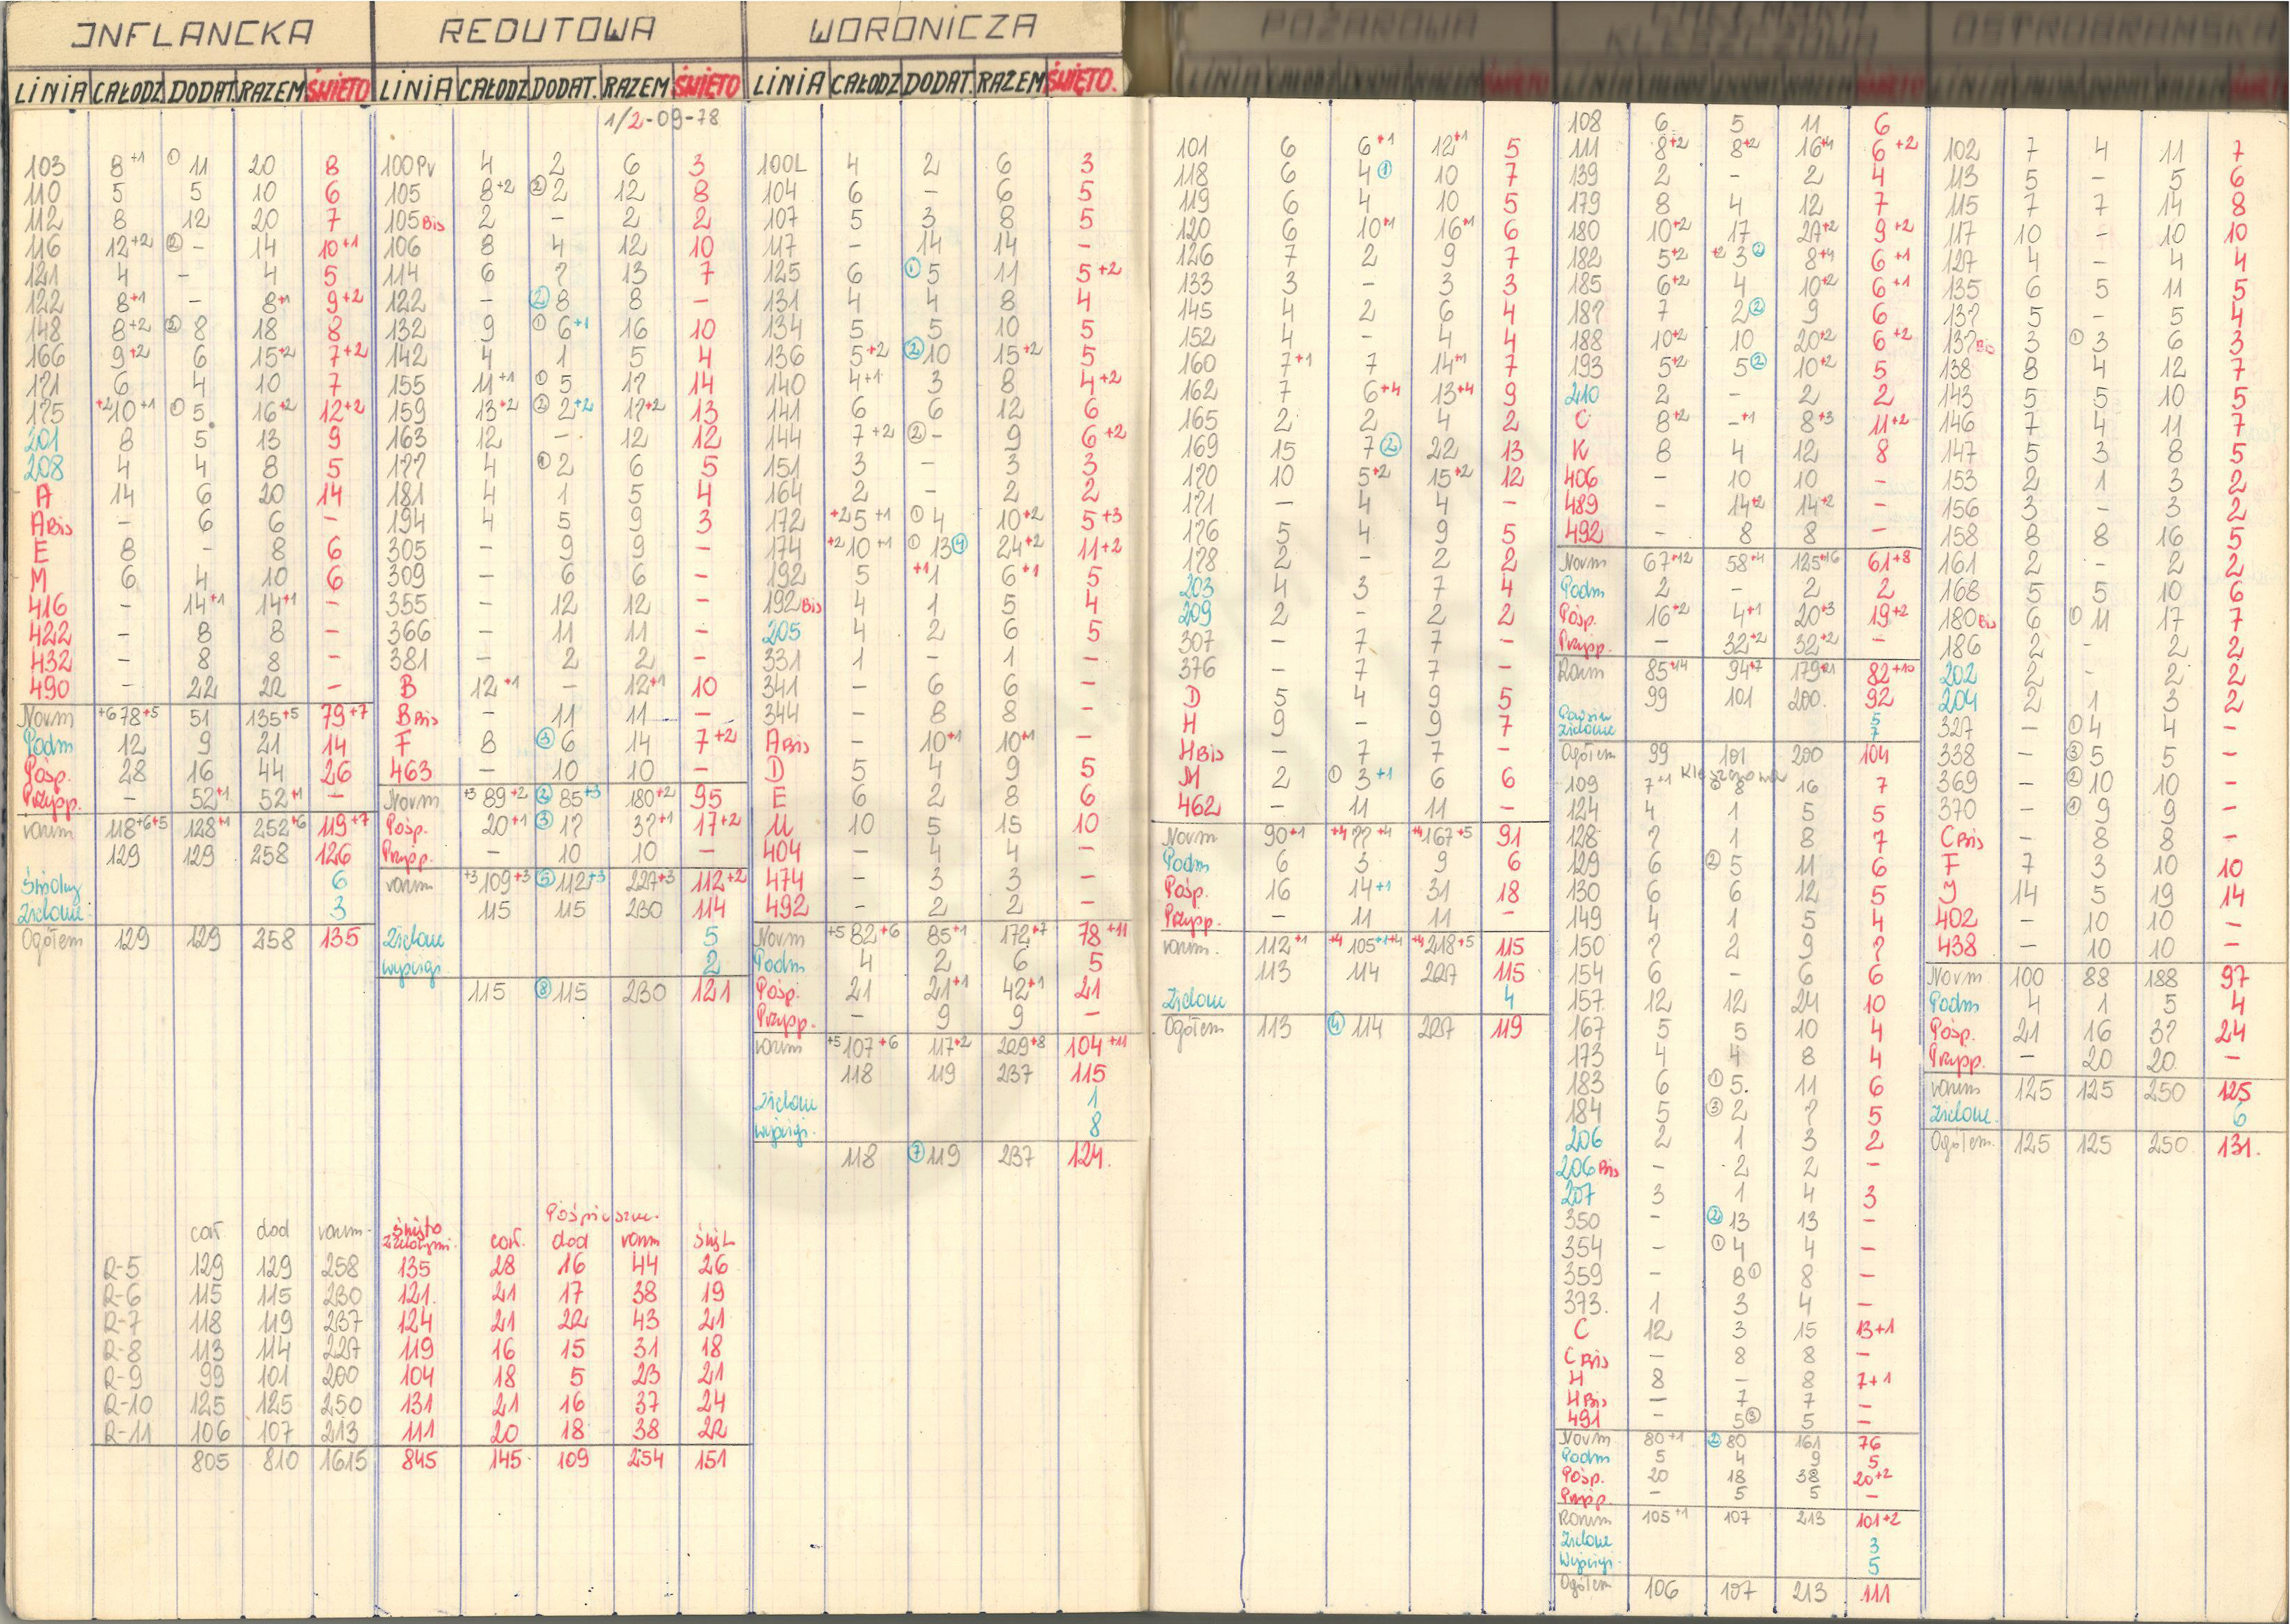 INFLANCKA
LINIA CAŁODZ DODAT. RAZEM ŚWIĘTO
103 8+1 ① 11 20 8
110 5 5 10 6
112 8 12 20 7
116 12+2 ② - 14 10+1
121 4 - 4 5
122 8+1 - 8+1 9+2
148 8+2 ② 8 18 8
166 9+2 6 15+2 7+2
171 6 4 10 7
175 +2 10+1 ① 5 16+2 12+2
201 8 5 13 9
208 4 4 8 5
A 14 6 20 14
A Bis - 6 6 -
E 8 - 8 6
M 6 4 10 6
416 - 14+1 14+1 -
422 - 8 8 -
432 - 8 8 -
490 - 22 22 -
Norm +6 78+5 51 135+5 79+7
Podm 12 9 21 14
Pośp. 28 16 44 26
Przysp. - 52+1 52+1 -
razem 118+6+5 128+1 252+6 119+7
129 129 258 126
6
Zielone 3
Ogółem 129 129 258 135
REDUTOWA
LINIA CAŁODZ DODAT. RAZEM ŚWIĘTO
1/2-09-78
100PV 4 2 6 3
105 8+2 ② 2 12 8
105 Bis 2 - 2 2
106 8 4 12 10
114 6 7 13 7
122 - ② 8 8 -
132 9 ① 6+1 16 10
142 4 1 5 4
155 11+1 ① 5 17 14
159 13+2 ② 2+2 17+2 13
163 12 - 12 12
177 4 ① 2 6 5
181 4 1 5 4
194 4 5 9 3
305 - 9 9 -
309 - 6 6 -
355 - 12 12 -
366 - 11 11 -
381 - 2 2 -
B 12+1 - 12+1 10
B Bis - 11 11 -
F 8 ③ 6 14 7+2
463 - 10 10 -
Norm +3 89+2 ② 85+3 180+2 95
Pośp. 20+1 ③ 17 37+1 17+2
Przysp. - 10 10 -
razem +3 109+3 ⑤ 112+3 227+3 112+2
115 115 230 114
Zielone 5
Wyścigi 2
115 ⑧ 115 230 121
WORONICZA
LINIA CAŁODZ DODAT. RAZEM ŚWIĘTO.
100L 4 2 6 3
104 6 - 6 5
107 5 3 8 5
117 - 14 14 -
125 6 ① 5 11 5+2
131 4 4 8 4
134 5 5 10 5
136 5+2 ② 10 15+2 5
140 4+1 3 8 4+2
141 6 6 12 6
144 7+2 ② - 9 6+2
151 3 - 3 3
164 2 - 2 2
172 +2 5+1 ① 4 10+2 5+3
174 +2 10+1 ① 13 ④ 24+2 11+2
192 5 +1 1 6+1 5
192 Bis 4 1 5 4
205 4 2 6 5
331 1 - 1 -
341 - 6 6 -
344 - 8 8 -
A Bis - 10+1 10+1 -
D 5 4 9 5
E 6 2 8 6
U 10 5 15 10
404 - 4 4 -
474 - 3 3 -
492 - 2 2 -
Norm +5 82+6 85+1 172+7 78+11
Podm 4 2 6 5
Pośp. 21 21+1 42+1 21
Przysp. - 9 9 -
razem +5 107+6 117+2 229+8 104+11
118 119 237 115
Zielone 1
Wyścigi. 8
118 ⑦ 119 237 124.
POŻAROWA
LINIA
101 6 6+1 12+1 5
118 6 4 ① 10 7
119 6 4 10 5
120 6 10+1 16+1 6
126 7 2 9 7
133 3 - 3 3
145 4 2 6 4
152 4 - 4 4
160 7+1 7 14+1 7
162 7 6+4 13+4 9
165 2 2 4 2
169 15 7 ② 22 13
170 10 5+2 15+2 12
171 - 4 4 -
176 5 4 9 5
178 2 - 2 2
203 4 3 7 4
209 2 - 2 2
307 - 7 7 -
376 - 7 7 -
D 5 4 9 5
H 9 - 9 7
H Bis - 7 7 -
M 2 ① 3+1 6 6
462 - 11 11 -
Norm 90+1 +4 77+4 +4 167+5 91
Podm 6 3 9 6
Pośp. 16 14+1 31 18
Przysp. - 11 11 -
razem. 112+1 +4 105+1+4 +4 218+5 115
113 114 227 115
Zielone 4
Ogółem 113 ④ 114 227 119
KLESZCZOWA
108 6 5 11 6
111 8+2 8+2 16+4 6+2
139 2 - 2 4
179 8 4 12 7
180 10+2 17 27+2 9+2
182 5+2 +2 3 ② 8+4 6+1
185 6+2 4 10+2 6+1
187 7 2 ② 9 6
188 10+2 10 20+2 6+2
193 5+2 5 ② 10+2 5
210 2 - 2 2
C 8+2 -+1 8+3 11+2
K 8 4 12 8
406 - 10 10 -
489 - 14+2 14+2 -
492 - 8 8 -
Norm 67+12 58+4 125+16 61+8
Podm 2 - 2 2
Pośp. 16+2 4+1 20+3 19+2
Przysp. - 32+2 32+2 -
Razem 85+14 94+7 179+21 82+10
99 101 200. 92
5
Zielone 7
Ogółem 99 101 200 104
Kleszczowa
109 7+1 8 16 7
124 4 1 5 5
128 7 1 8 7
129 6 ② 5 11 6
130 6 6 12 5
149 4 1 5 4
150 7 2 9 7
154 6 - 6 6
157. 12 12 24 10
167 5 5 10 4
173 4 4 8 4
183 6 ① 5. 11 6
184 5 ③ 2 7 5
206 2 1 3 2
206 Bis - 2 2 -
207 3 1 4 3
350 - ② 13 13 -
354 - ① 4 4 -
359 - 8 ① 8 -
373. 1 3 4 -
C 12 3 15 13+1
C Bis - 8 8 -
H 8 - 8 7+1
H Bis - 7 7 -
491 - 5 ③ 5 -
Norm 80+1 ② 80 161 76
Podm 5 4 9 5
Pośp. 20 18 38 20+2
Przysp. - 5 5 -
Razem 105+1 107 213 101+2
Zielone 3
Wyścigi. 5
Ogółem 106 107 213 111
OSTROBRAMSKA
102 7 4 11 7
113 5 - 5 6
115 7 7 14 8
117 10 - 10 10
127 4 - 4 4
135 6 5 11 5
137 5 - 5 4
137 Bis 3 ① 3 6 3
138 8 4 12 7
143 5 5 10 5
146 7 4 11 7
147 5 3 8 5
153 2 1 3 2
156 3 - 3 2
158 8 8 16 5
161 2 - 2 2
168 5 5 10 6
180 Bis 6 ① 11 17 7
186 2 - 2 2
202 2 - 2 2
204 2 1 3 2
327 - ① 4 4 -
338 - ③ 5 5 -
369 - ② 10 10 -
370 - ① 9 9 -
C Bis - 8 8 -
F 7 3 10 10
J 14 5 19 14
402 - 10 10 -
438 - 10 10 -
Norm 100 88 188 97
Podm 4 1 5 4
Pośp. 21 16 37 24
Przysp. - 20 20 -
razem 125 125 250 125
Zielone. 6
Ogółem. 125 125 250 131.
Pośpieszne.
cał dod razem. Święto cał. dod razem
R-5 129 129 258 135 28 16 44 26
R-6 115 115 230 121. 21 17 38 19
R-7 118 119 237 124 21 22 43 21
R-8 113 114 227 119 16 15 31 18
R-9 99 101 200 104 18 5 23 21
R-10 125 125 250 131 21 16 37 24
R-11 106 107 213 111 20 18 38 22
805 810 1615 845 145 109 254 151